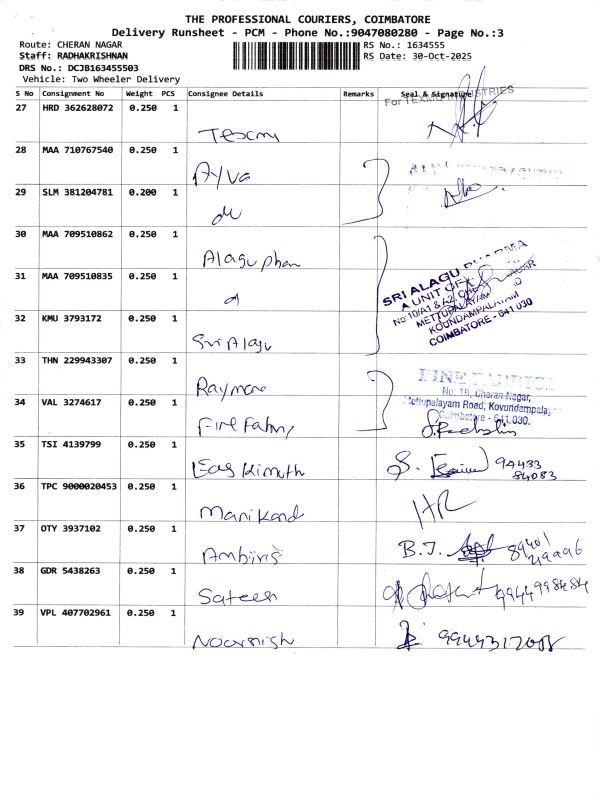 THE PROFESSIONAL COURIERS, COIMBATORE
Delivery Runsheet - PCM - Phone No.:9047080280 - Page No.:3
Route: CHERAN NAGAR RS No.: 1634555
Staff: RADHAKRISHNAN RS Date: 30-Oct-2025
DRS No.: DCJB163455503
Vehicle: Two Wheeler Delivery
S No Consignment No Weight PCS Consignee Details Remarks Seal & Signature
For TEXMO INDUSTRIES
27 HRD 362628072 0.250 1
Texmo
28 MAA 710767540 0.250 1
Ayva
29 SLM 381204781 0.200 1
do
30 MAA 709510862 0.250 1
Alagu phar
31 MAA 709510835 0.250 1
d
SRI ALAGU PHARMA
A UNIT OF
No:10/A1 & A2,
METTUPALAYAM
KOUNDAMPALAYAM
COIMBATORE - 641 030
32 KMU 3793172 0.250 1
Sri Alagu
33 THN 229943307 0.250 1
Raymond
FINE FABRICS
No: 1B, Cheran Nagar,
Mettupalayam Road, Kovundampalay
Coimbatore - 641 030.
34 VAL 3274617 0.250 1
Fine Fabri
35 TSI 4139799 0.250 1
S. 94433
84083
36 TPC 9000020453 0.250 1
Manikand HR
37 OTY 3937102 0.250 1
B.J. 89401
38 GDR 5438263 0.250 1
Sateesh
39 VPL 407702961 0.250 1